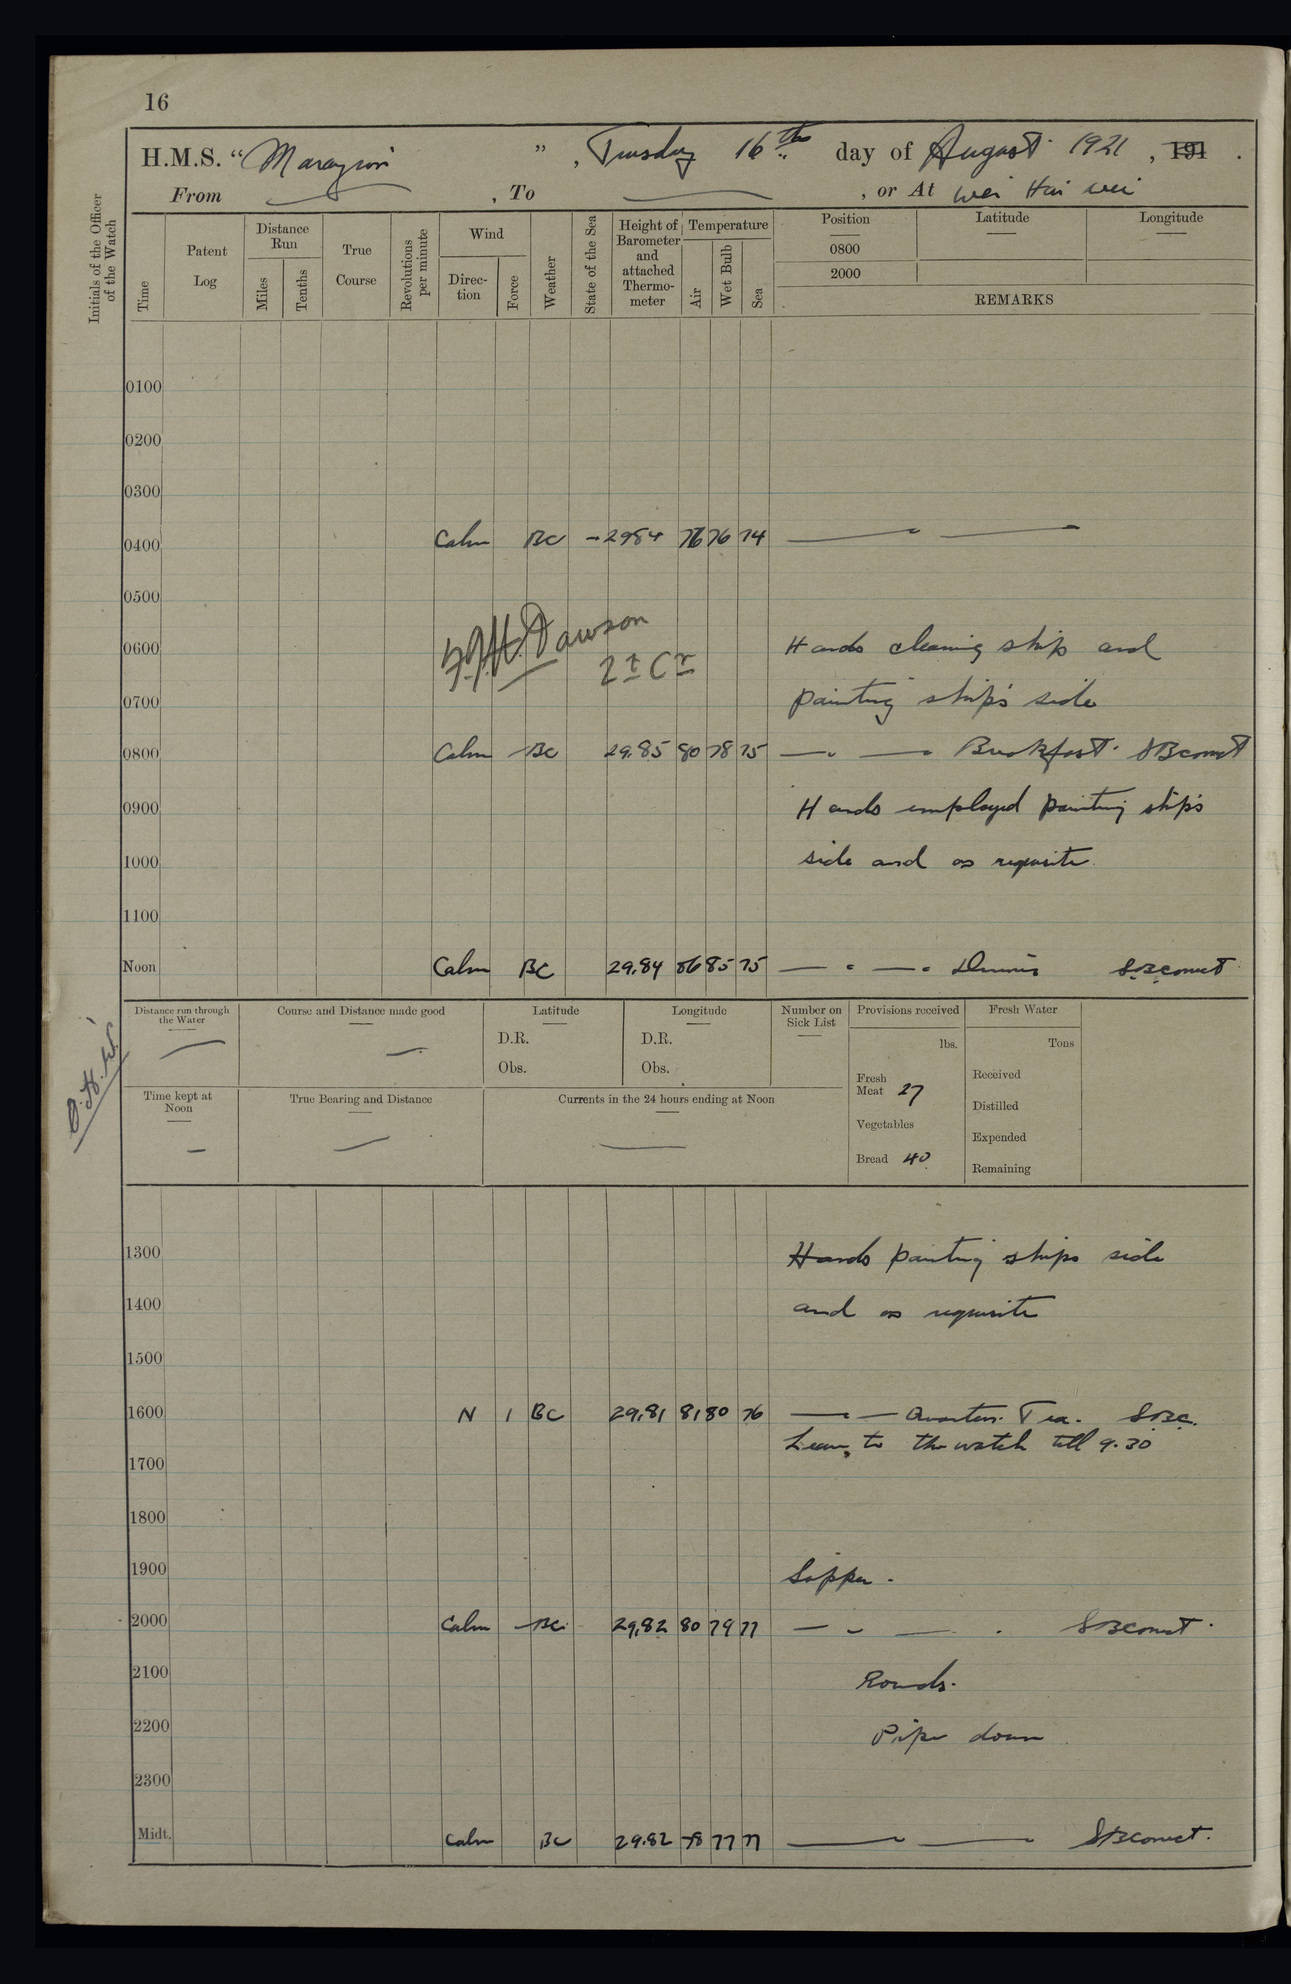 16
H.M.S. “ Marazion ” , Tuesday 16th day of August 1921 , 191 .
From , To , or At Wei Hai Wei
Initials of the Officer of the Watch
Time
Patent Log
Distance Run
Miles
Tenths
True Course
Revolutions per minute
Wind
Direction
Force
Weather
State of the Sea
Height of Barometer and attached Thermometer
Temperature
Air
Wet Bulb
Sea
Position
Latitude
Longitude
0800
2000
REMARKS
0100
0200
0300
0400 Calm BC - 2984 76 76 74
0500
F.J.H. Dawson
Lt Cr
0600 Hands cleaning ship and
0700 painting ship's side
0800 Calm - BC 29.85 80 78 75 Breakfast. SBC correct
0900 Hands employed painting ships
1000 side and as requisite
1100
Noon Calm BC 29.84 86 85 75 Dinner SBC correct
Distance run through the Water
Course and Distance made good
Latitude
D.R.
Obs.
Longitude
D.R.
Obs.
Number on Sick List
Provisions received
lbs.
Fresh Meat 27
Vegetables
Bread 40
Fresh Water
Tons
Received
Distilled
Expended
Remaining
Time kept at Noon
True Bearing and Distance
Currents in the 24 hours ending at Noon
1300 Hands painting ships side
1400 and as requisite
1500
1600 N 1 BC 29.81 81 80 76 Quarters. Tea. SBC.
Leave to the watch till 9.30
1700
1800
1900 Supper.
2000 Calm - BC 29.82 80 79 77 SBC correct.
2100 Rounds.
2200 Pipe down
2300
Midt. Calm BC 29.82 78 77 77 SBC correct.